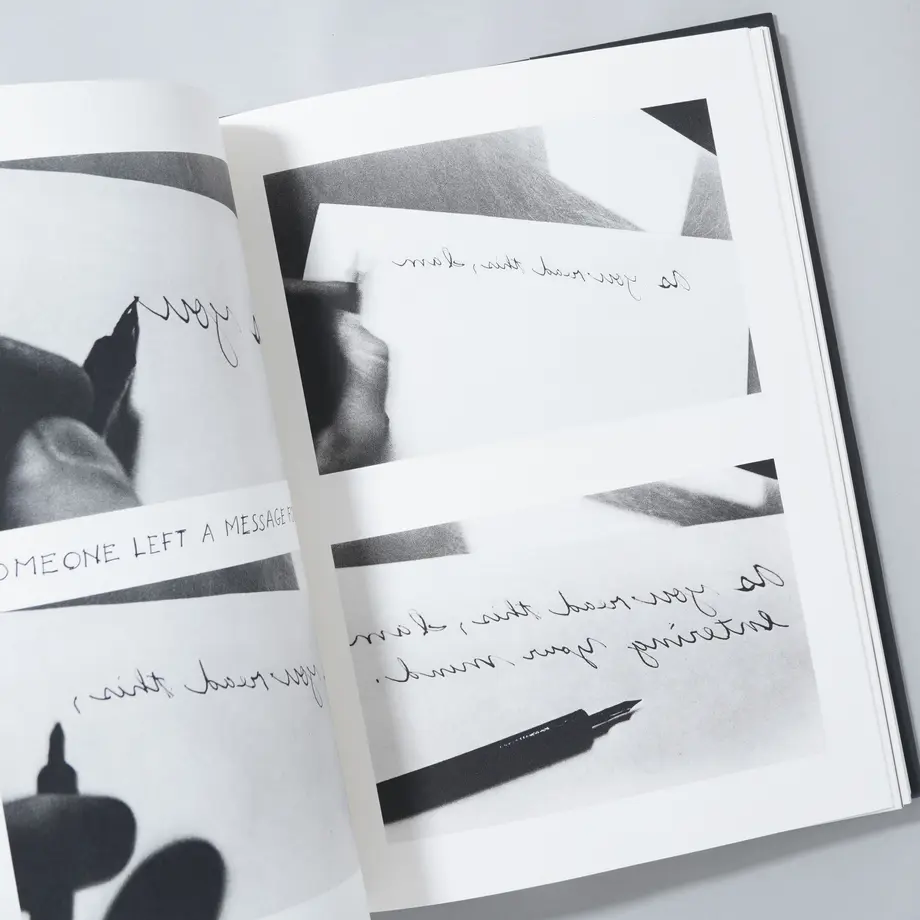 s you
OMEONE LEFT A MESSAGE F
you read this,
As you read this, I am
As you read this, I am
entering your mind.